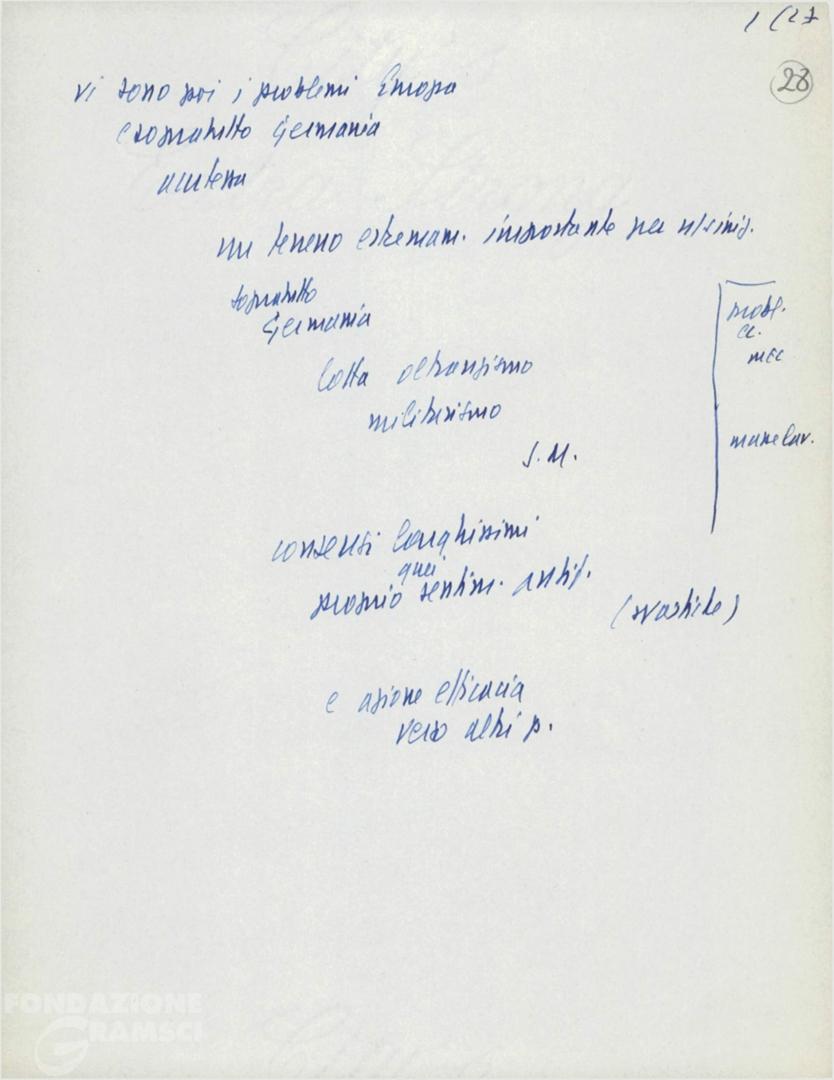 1/27
28
vi sono poi i problemi Europa
e sopratutto Germania
acutezza
un terreno estremam. importante per n/sinis.
sopratutto
Germania
lotta oltranzismo
militarismo
S.M.
probl.
ec.
MEC
mano lav.
consensi larghissimi
qui
proprio sentim. antif.
(svastiche)
e azione efficacia
verso altri p.
FONDAZIONE
GRAMSCI